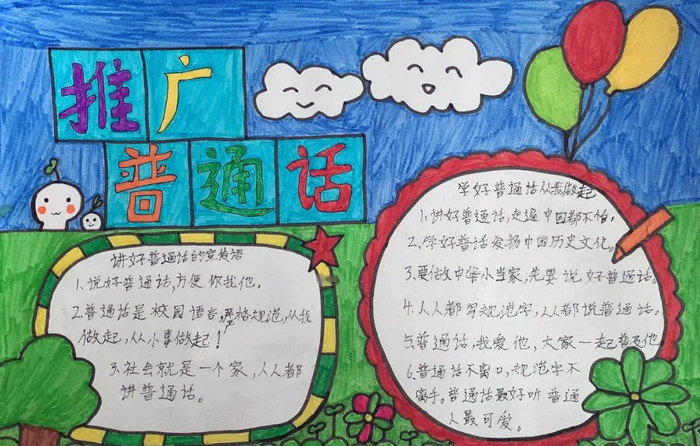 推广
普通话
讲好普通话的宣传语
1、说好普通话,方便你我他。
2、普通话是校园语言,严格规范,从我
做起,从小事做起!
3、社会就是一个家,人人都
讲普通话。
学好普通话从我做起
1、讲好普通话,走遍中国都不怕。
2、学好普话发扬中国历史文化。
3、要做中华小当家,先要说好普通话。
4、人人都写规范字,人人都说普通话。
5、普通话,我爱他,大家一起普及他
6、普通话不离口,规范字不
离手。普通话最好听普通
人最可爱。